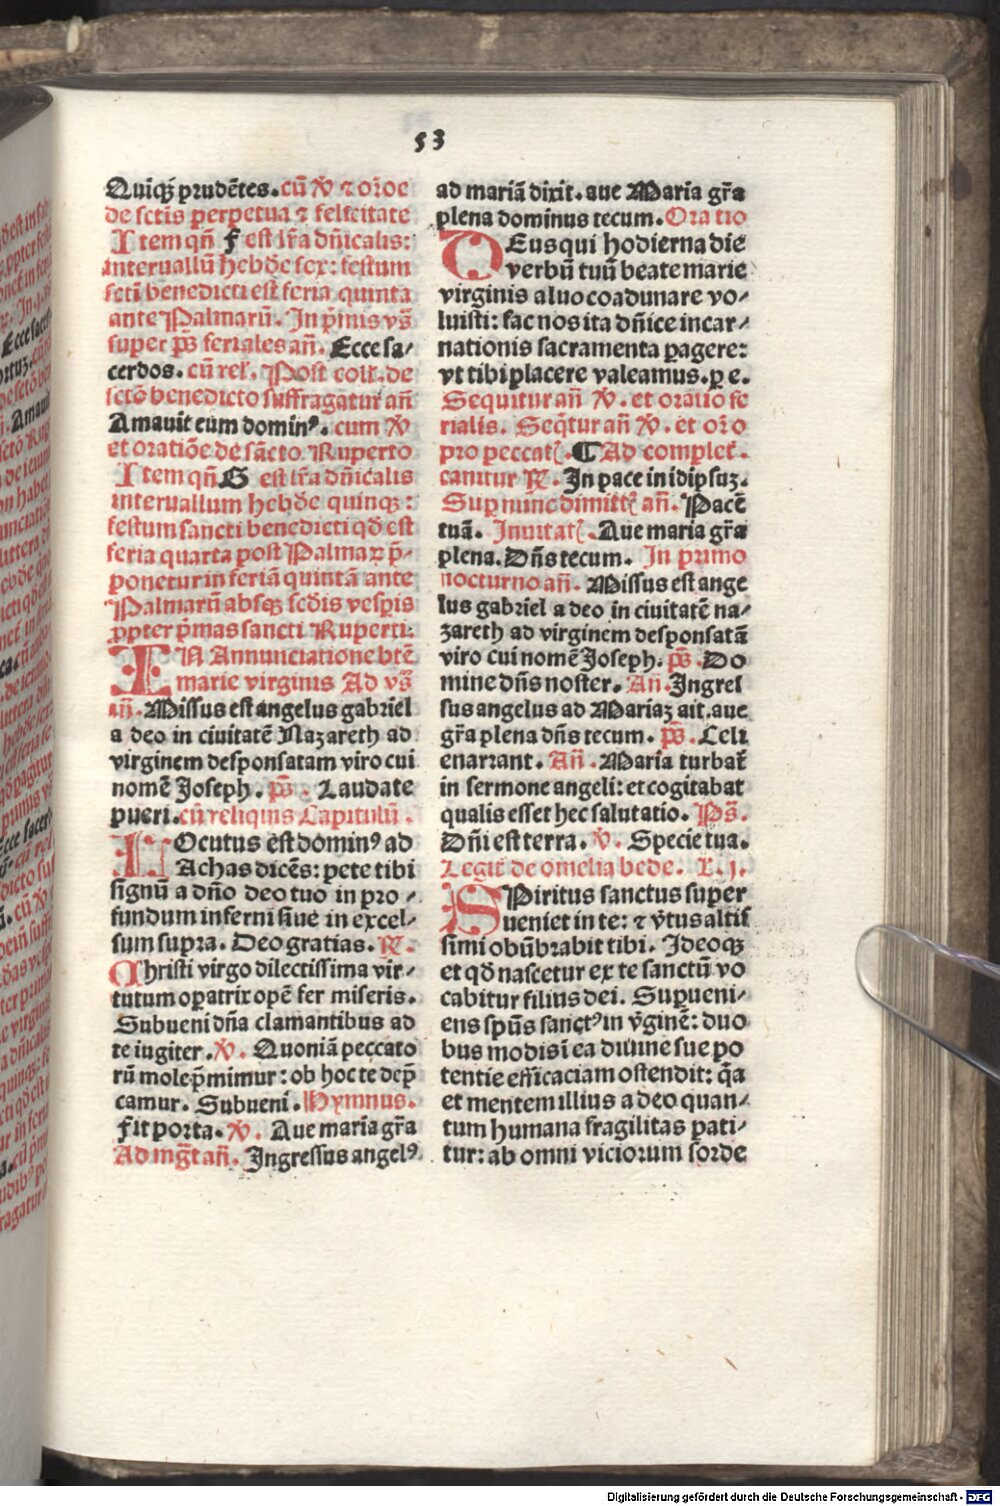 53
Quiq̄ȝ prudētes. cū ℣ ⁊ or̄oe
de sctīs perpetua ⁊ felicitate
Item qn̄ f est lr̄a dn̄icalis:
interuallū hebd̄e sex: festum
sctī benedicti est feria quinta
ante Palmarū. In p̄mis vs̄
super ps̄ feriales an̄. Ecce sa/
cerdos. cū rel̄. Post coll̄. de
sctō benedicto suffragatur an̄
Amauit eum dominꝰ. cum ℣
et oratiōe de sācto Ruperto
Item qn̄ G est lr̄a dn̄icalis
interuallum hebd̄e quinqȝ:
festum sancti benedicti qd̄ est
feria quarta post Palmaꝝ p̄-
ponetur in feriā quintā ante
Palmarū absqȝ scd̄is vesp̄is
ꝓpter p̄mas sancti Ruperti:
IN Annunciatione btē
marie virginis Ad vs̄
an̄. Missus est angelus gabriel
a deo in ciuitatē Nazareth ad
virginem desponsatam viro cui
nomē Joseph. ps̄. Laudate
pueri. cū reliquis Capitulū.
LOcutus est dominꝰ ad
Achas dicēs: pete tibi
signū a dn̄o deo tuo in pro/
fundum inferni siue in excel/
sum supra. Deo gratias. ℟.
Christi virgo dilectissima vir/
tutum oꝑatrix opē fer miseris.
Subueni dn̄a clamantibus ad
te iugiter. ℣. Quoniā peccato
rū mole p̄mimur: ob hoc te dep̄
camur. Subueni. Hymnus.
Fit porta. ℣. Aue maria gr̄a
Ad mgt̄ an̄. Ingressus angelꝰ
ad mariā dixit. aue Maria gr̄a
plena dominus tecum. Oratio
DEus qui hodierna die
verbū tuū beate marie
virginis aluo coadunare vo/
luisti: fac nos ita dn̄ice incar/
nationis sacramenta ꝑagere:
vt tibi placere valeamus. ꝑ e.
Sequitur an̄ ℣. et oratio fe
rialis. Seq̄tur an̄ ℣. et or̄o
pro peccatꝭ. ¶ Ad complet̄.
cantitur ℟. In pace in idipsuȝ.
Sup nunc dimittꝭ an̄. Pacē
tuā. Inuitatꝭ. Aue maria gr̄a
plena. Dn̄s tecum. In primo
nocturno an̄. Missus est ange
lus gabriel a deo in ciuitatē na/
zareth ad virginem desponsatā
viro cui nomē Joseph. ps̄. Do
mine dn̄s noster. An̄. Ingres
sus angelus ad Mariaȝ ait. aue
gr̄a plena dn̄s tecum. ps̄. Celi
enarrant. An̄. Maria turbat̄
in sermone angeli: et cogitabat
qualis esset hec salutatio. Ps̄.
Dn̄i est terra. ℣. Specie tua.
Legit̄ de omelia bede. L. j.
SPiritus sanctus super
ueniet in te: ⁊ v̄tus altis
simi obūbrabit tibi. Ideoqȝ
et qd̄ nascetur ex te sanctū vo
cabitur filius dei. Supueni/
ens spūs sanctꝰ in v̄ginē: duo
bus modis ī ea diuine sue po
tentie efficaciam ostendit: q̄a
et mentem illius a deo quan/
tum humana fragilitas pati/
tur: ab omni viciorum sorde
Digitalisierung gefördert durch die Deutsche Forschungsgemeinschaft - DFG